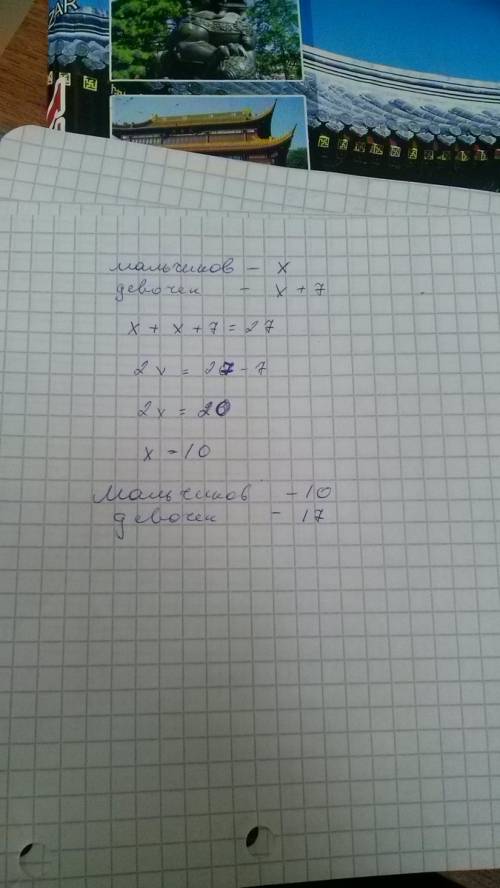 ZAR
мальчиков - x
девочек - x + 7
x + x + 7 = 27
2x = 27 - 7
2x = 20
x = 10
Мальчиков - 10
девочек - 17